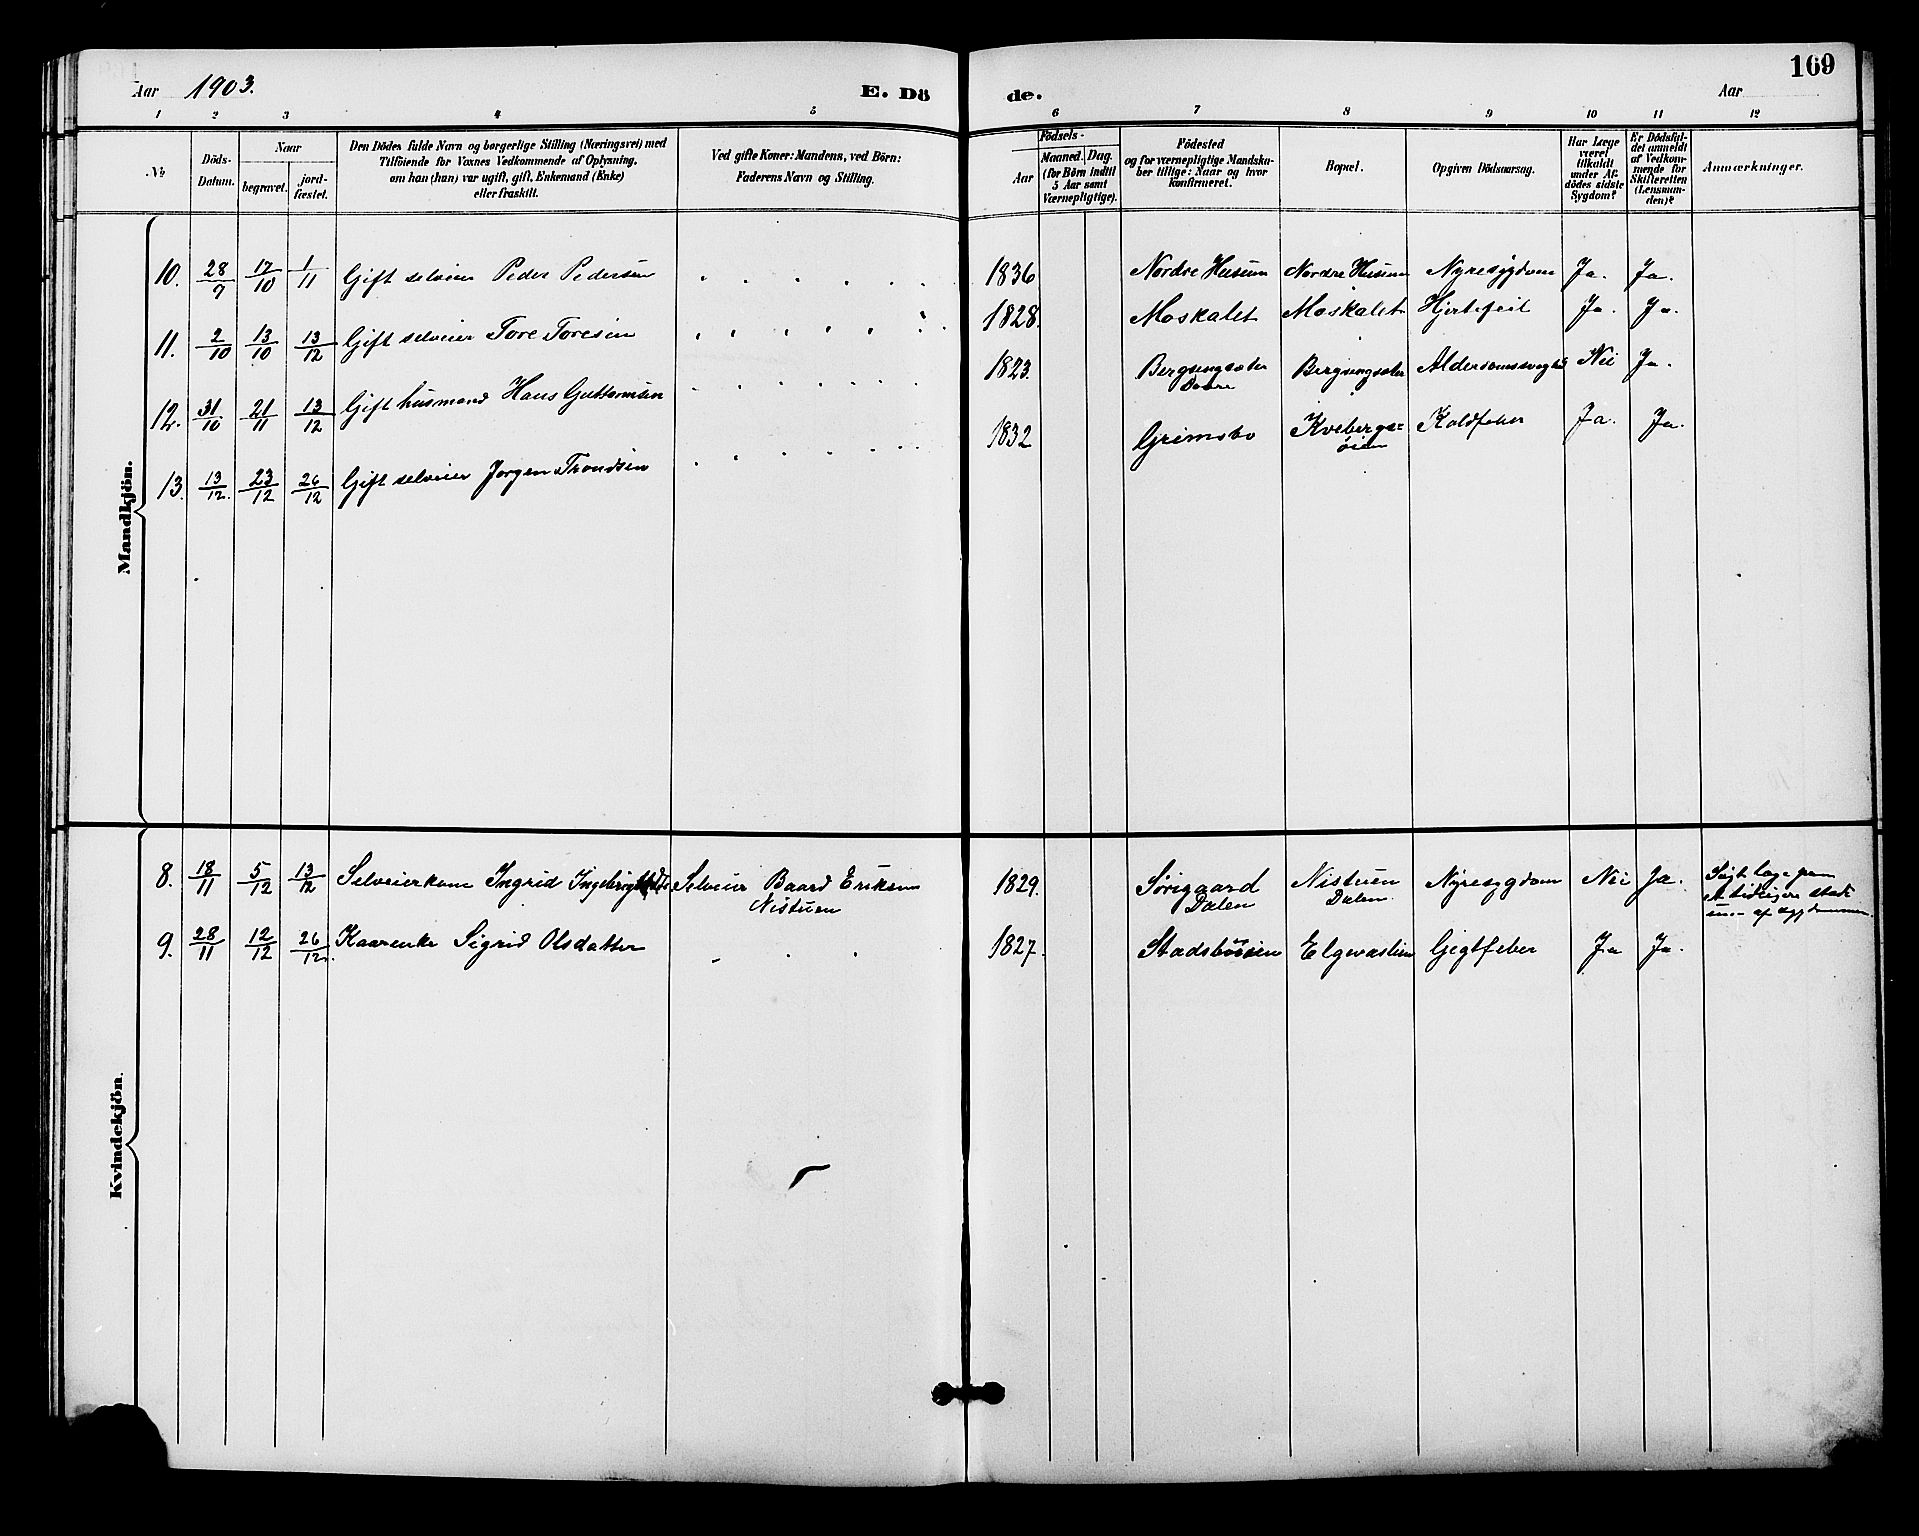 Aar 1903. E. Dö de. Aar 169
1 2 3 4 5 6 7 8 9 10 11 12
No Döds-Datum. Naar begravet. jord-fæstet. Den Dödes fulde Navn og borgerlige Stilling (Næringsvei) med Tilföiende for Voxnes Vedkommende af Oplysning, om han (hun) var ugift, gift, Enkemand (Enke) eller fraskilt. Ved gifte Koner: Mandens, ved Börn: Faderens Navn og Stilling. Födsels- Aar Maaned. Dag. (for Börn indtil 5 Aar samt Værnepligtige). Födested og for værnepligtige Mandskaber tillige: Naar og hvor konfirmeret. Bopæl. Opgiven Dödsaarsag. Har Læge været tilkaldt under Afdödes sidste Sygdom? Er Dödsfaldet anmeldt af Vedkommende for Skifteretten (Lensmanden)? Anmærkninger.
Mandkjön.
10. 28/9 17/10 1/11 Gift selveier Peder Pedersen 1836 Nordre Husum Nordre Husum Nyresygdom Ja. Ja.
11. 2/10 13/10 13/12 Gift selveier Tore Toresen 1828. Moskalet Moskalet Hjertefeil Ja. Ja.
12. 31/10 21/11 13/12 Gift husmand Hans Guttormsen 1823. Bergsengsæter Bergsengsæter Alderdomssvaghed Nei Ja.
13. 13/12. 23/12 26/12 Gift selveier Jørgen Trondsen 1832 Grimsbo Kvebergs=
øien Koldfeber Ja. Ja.
Kvindekjön.
8. 18/11 5/12 13/12 Selveierkone Ingrid Selveier Baard Eriksen
Nistuen 1829. Sørigaard
Dalen Nistuen
Dalen Nyresygdom Nei Ja.
9. 28/11 12/12 26/12. Kaarenke Sigrid Olsdatter 1827. Stadsbuøien Elgvaslien Gjigtfeber Ja Ja.